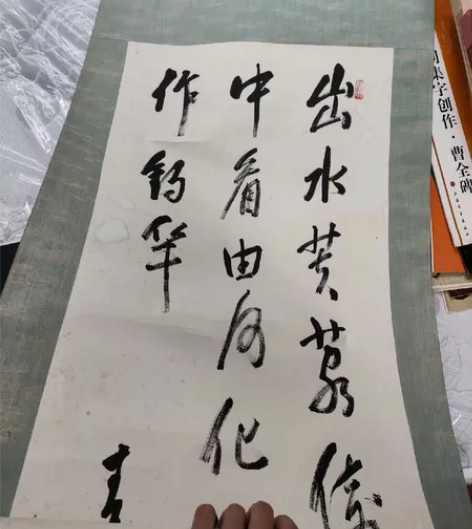 出水芙蓉
中看由何化
作钓竿
集字创作·曹全碑